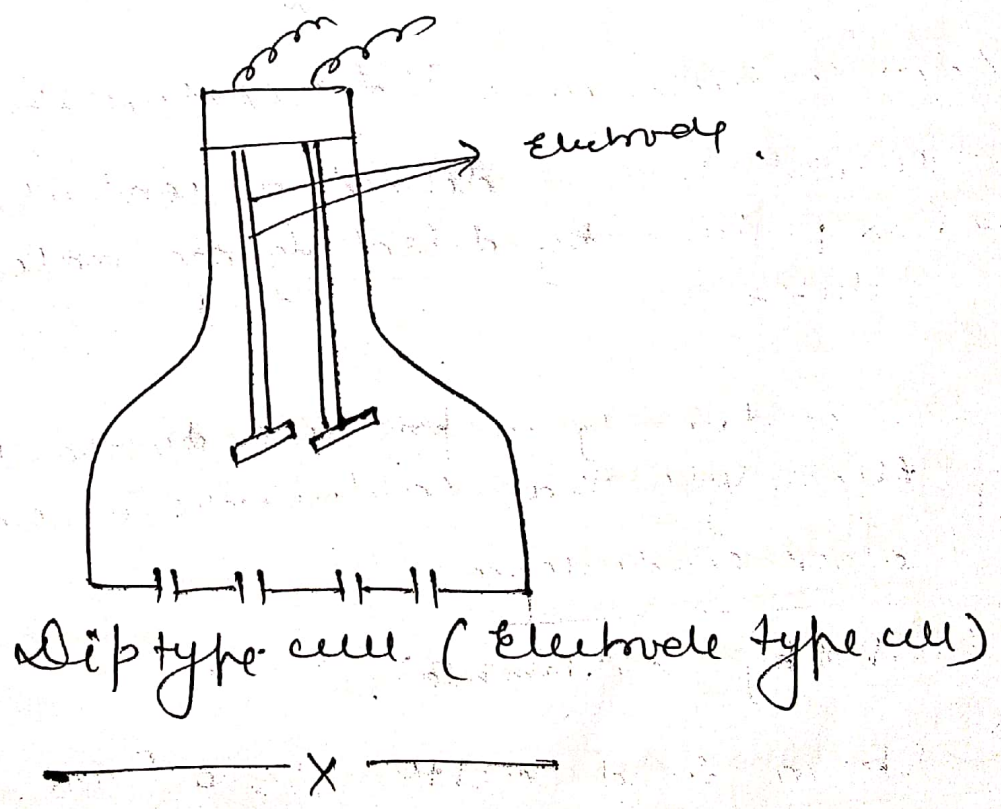 Electrode.
Dip type cell. (Electrode type cell)
X